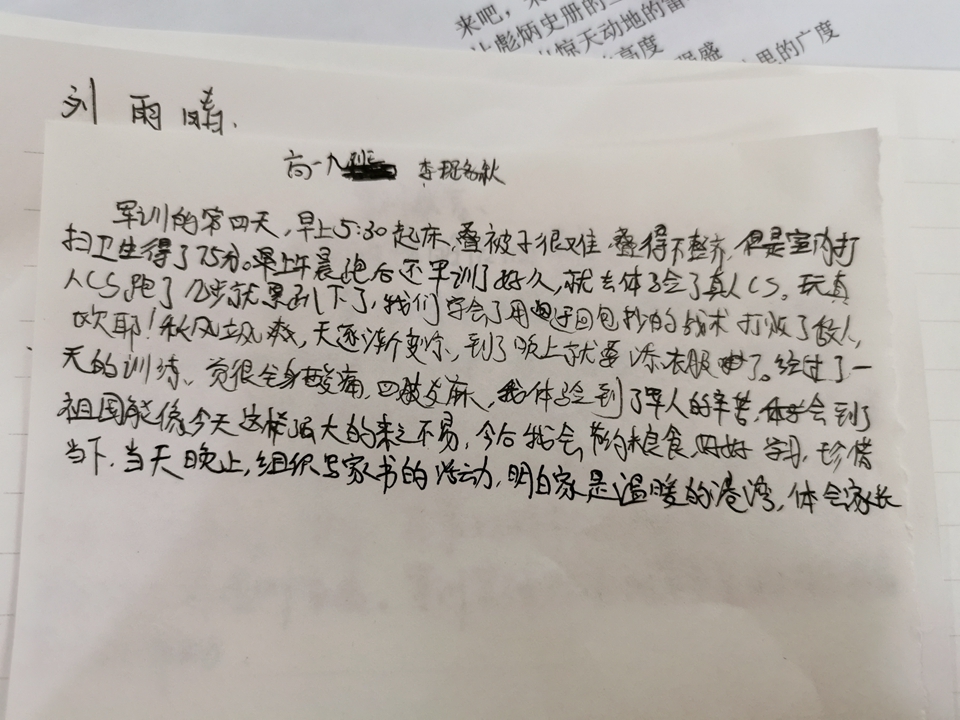 来吧,
彪炳史册的
惊天动地的雷
高度
强盛
里的广度
刘雨晴.
高一九班
军训的第四天,早上5:30起床,叠被子很难,叠得不整齐,但是室内打
扫卫生得了75分。早上午晨跑后还军训了好久,就去体验了真人CS。玩真
人CS跑了几步就累趴下了,我们学会了用迂回包抄的战术打败了敌人,
欧耶!秋风立飒爽,天逐渐变凉、到了晚上就要添衣服了。经过了一
天的训练、觉很全身酸痛,四肢发麻,我体验到了军人的辛苦,体会到了
祖国能像今天这样强大的来之不易,今后我会节约粮食,好好学习,珍惜
当下,当天晚上,组织写家书的活动,明白家是温暖的港湾,体会家长